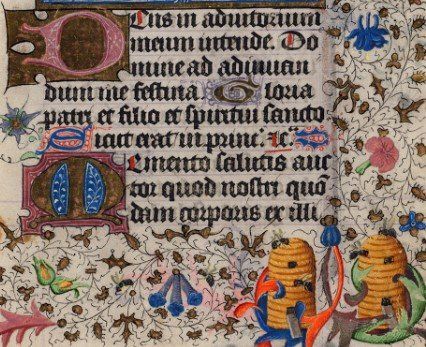 Deus in adiutorium
meum intende. Do
mine ad adiuuan
dum me festina Gloria
patri et filio et spiritui sancto
Sicut erat in princ.
Memento salutis auc
tor quod nostri quō
dam corporis ex illi